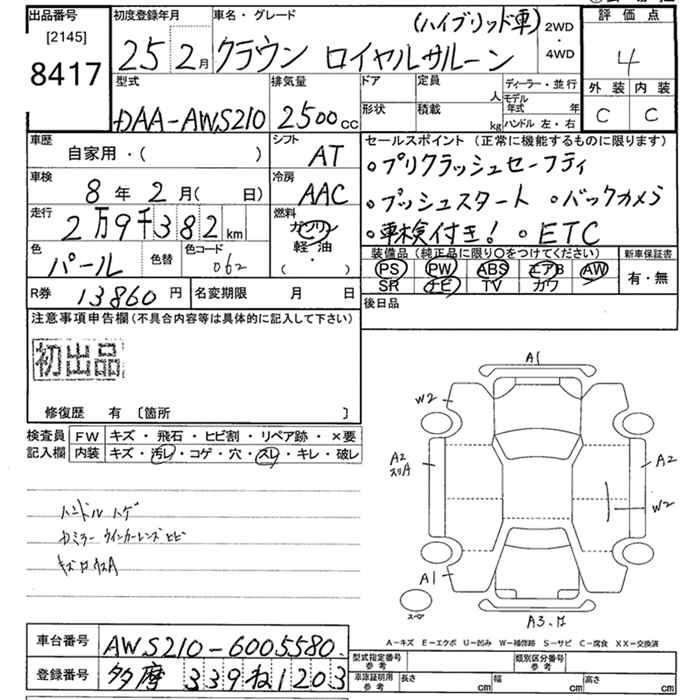 出品番号
[2145]
8417
初度登録年月
25 2月
車名・グレード
クラウン ロイヤルサルーン
(ハイブリッド車)
2WD
・
4WD
評価点
4
外装 内装
C C
型式
DAA-AWS210
排気量
2500cc
ドア
定員
人
形状
積載
kg
ディーラー・並行
モデル年式 年
ハンドル 左・右
車歴
自家用・( )
シフト
AT
車検
8年2月( 日)
冷房
AAC
走行
2万9千382km
燃料
ガソリン
軽・油
・( )
色
パール
色替
色コード
062
R券 13860円
名変期限 月 日
セールスポイント(正常に機能するものに限ります)
。プリクラッシュセーフティ
。プッシュスタート 。バックカメラ
。車検付き! 。ETC
装備品(純正品に限り〇をつけてください)
PS PW ABS エアB AW
SR ナビ TV カワ
新車保証書
有・無
後日品
注意事項申告欄(不具合内容等は具体的に記入して下さい)
初出品
修復歴 有〔箇所 〕
検査員
記入欄
FW キズ・飛石・ヒビ割・リペア跡・×要
内装 キズ・汚レ・コゲ・穴・スレ・キレ・破レ
ハンドルハゲ
ミラーウインカーレンズヒビ
A1
W2
A2
スリA
A2
W2
A1
スペア
A3
A-キズ E-エクボ U-凹み W-補修跡 S-サビ C-腐食 XX-交換済
車台番号 AWS210-6005580
登録番号 多摩 339ね1203
型式指定番号
参考
類別区分番号
参考
車庫証明用
参考
長さ cm 幅 cm 高さ cm